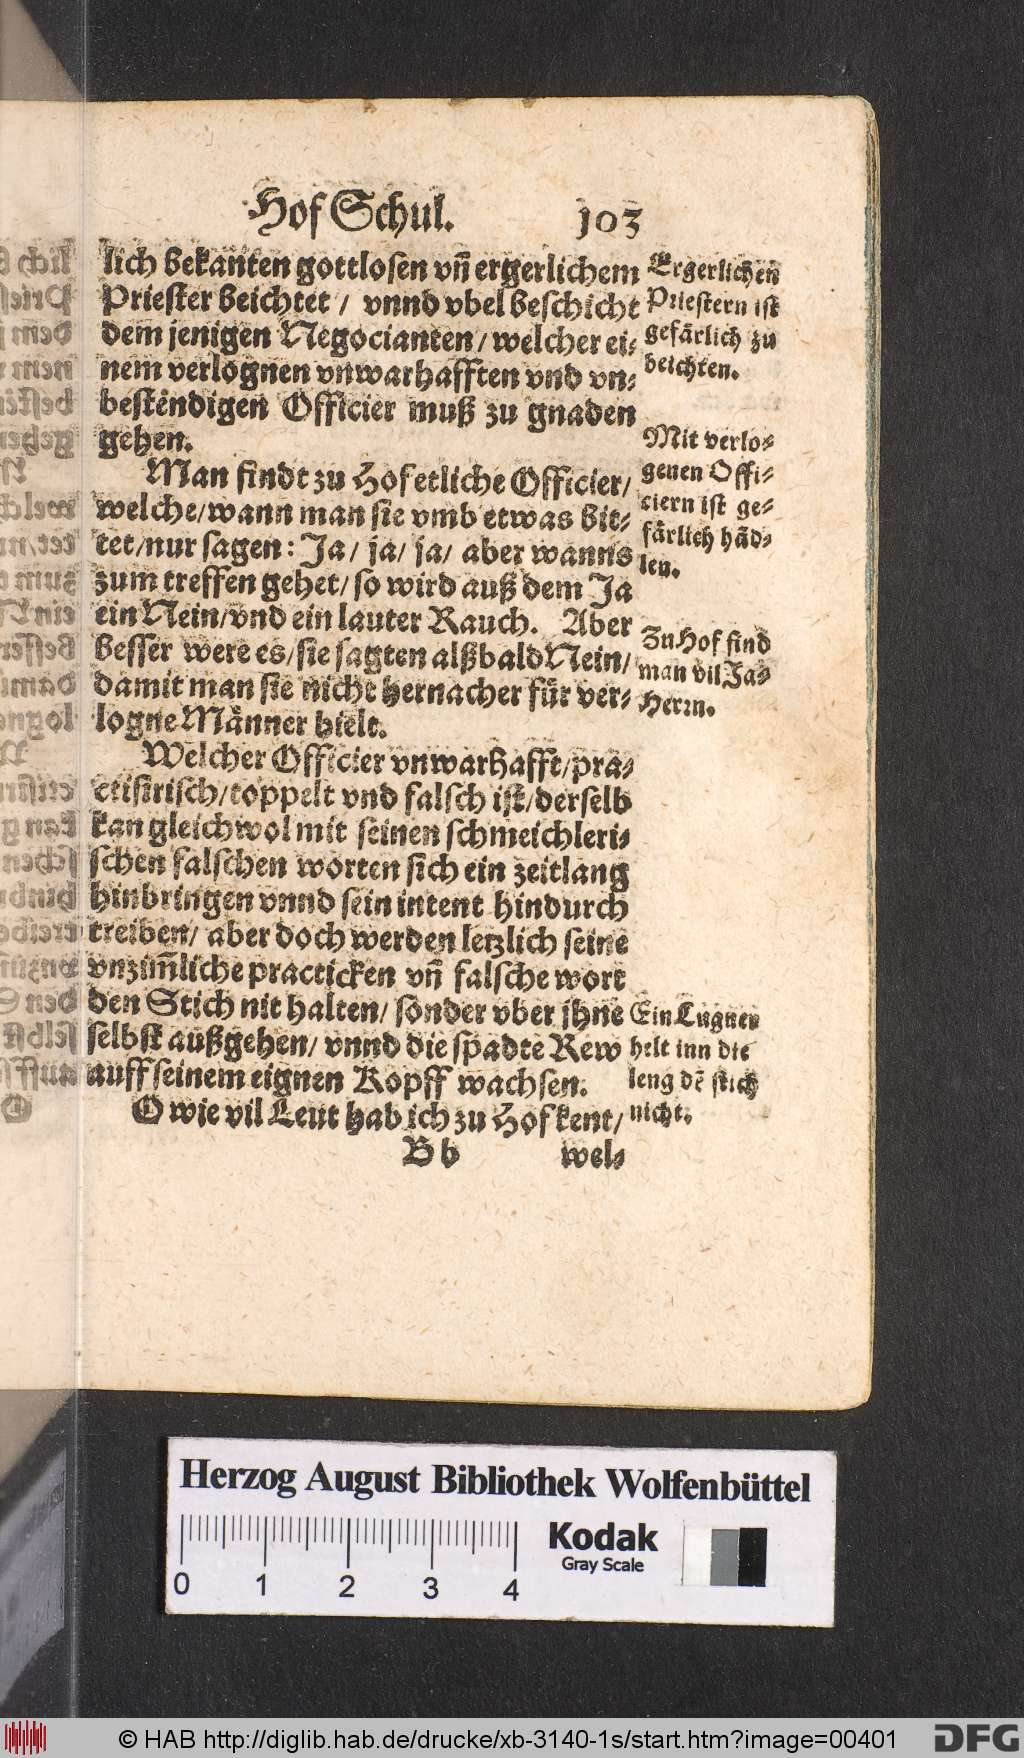 Hof Schul. 103
lich bekanten gottlosen vñ ergerlichem
Priester beichtet / vnnd vbel beschicht
dem jenigen Negocianten / welcher ei⸗
nem verlognen vnwarhafften vnd vn⸗
bestendigen Officier muß zu gnaden
gehen.
Man findt zu Hof etliche Officier /
welche / wann man sie vmb etwas bit⸗
tet / nur sagen: Ja / ja / ja / aber wanns
zum treffen gehet / so wird auß dem Ja
ein Nein / vnd ein lauter Rauch. Aber
besser were es / sie sagten alßbald Nein /
damit man sie nicht hernacher für ver⸗
logne Männer hielt.
Welcher Officier vnwarhafft / pra⸗
ctisirisch / toppelt vnd falsch ist / derselb
kan gleichwol mit seinen schmeichleri⸗
schen falschen worten sich ein zeitlang
hinbringen vnnd sein intent hindurch
treiben / aber doch werden letzlich seine
vnzim̃liche practicken vñ falsche wort
den Stich nit halten / sonder vber jhne
selbst außgehen / vnnd die spadte Rew
auff seinem eignen Kopff wachsen.
O wie vil Leut hab ich zu Hof kent /
Bb wel⸗
Ergerlichen
Priestern ist
gefärlich zu
beichten.
Mit verlo⸗
genen Offi⸗
ciern ist ge⸗
färlich hãd⸗
len.
Zu Hof find
man vil Ja⸗
Herrn.
Ein Lugner
helt inn die
leng dẽ stich
nicht.
Herzog August Bibliothek Wolfenbüttel
Kodak
Gray Scale
0 1 2 3 4
© HAB http://diglib.hab.de/drucke/xb-3140-1s/start.htm?image=00401
DFG